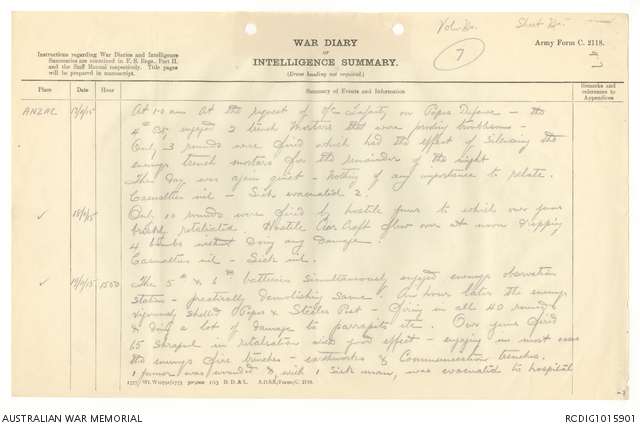 Vol. No.
Sheet No.
7
WAR DIARY
OF
INTELLIGENCE SUMMARY.
(Erase heading not required.)
Army Form C. 2118.
Instructions regarding War Diaries and Intelligence
Summaries are contained in F. S. Regs., Part II.
and the Staff Manual respectively. Title pages
will be prepared in manuscript.
Place
Date
Hour
Summary of Events and Information
Remarks and
references to
Appendices
ANZAC 17/9/15 At 1.0 am At the request of O/C Infantry on Popes Defense - the
4th By engaged 2 trench mortars that were proving troublesome -
Only 3 rounds were fired which had the effect of silencing the
enemys trench mortars for the remainder of the night
The Day was again quiet - Nothing of any importance to relate.
Casualties nil - Sick evacuated 2.
✓ 18/9/15 Only 10 rounds were fired by hostile guns to which our guns
briskly retaliated. Hostile Air Craft flew over at noon dropping
4 bombs without doing any damage.
Casualties nil - Sick nil.
✓ 19/9/15 1500 The 5th & 6th batteries simultaneously engaged enemys observation
station - practically demolishing same. An hour later the enemy
vigorously shelled Popes & Steeles Post - firing in all 40 rounds
& doing a lot of damage to parrapits etc. Our guns fired
65 shrapnel in retaliation with good effect - engaging in most cases
the enemys fire trenches - earthworks & Communication trenches.
1 gunner was wounded &, with 1 sick man, was evacuated to hospital
AUSTRALIAN WAR MEMORIAL
RCDIG1015901